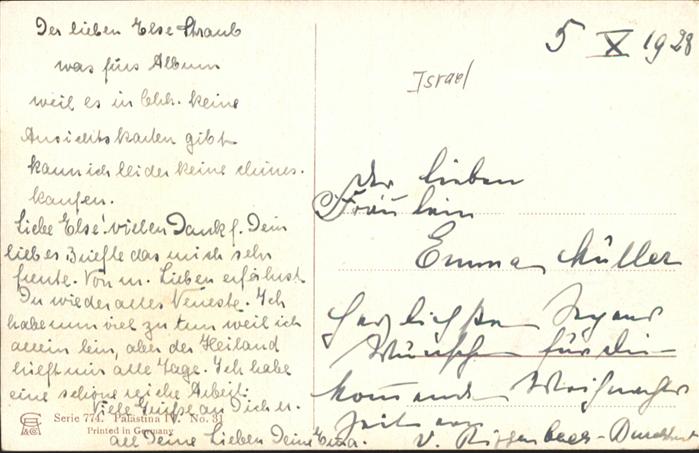 Der lieben Else Straub
was fürs Album
weil es in Chh. keine
Ansichtskarten gibt
kann ich leider keine chines.
kaufen.
Liebe Else! vielen Dank f. Dein
liebes Briefle das mich sehr
freute. Von m. Lieben erfährst
Du wieder alles Neueste. Ich
habe nun viel zu tun weil ich
allein bin, aber der Heiland
hilft mir alle Tage. Ich habe
eine schöne reiche Arbeit.
Viele Grüße an Dich u.
all Deine Lieben Deine Emma.
Serie 774. Palästina IV. No. 31
Printed in Germany
5 X 1928
Israel
Der lieben
Fräulein
Emma Müller
Herzlichsten Segens
Wünsche für die
kommende Weihnachts
Zeit von
V.